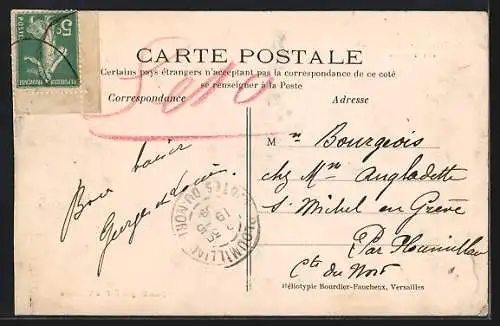 5c
POSTES
REPUBLIQUE FRANÇAISE
CARTE POSTALE
Certains pays étrangers n'acceptant pas la correspondance de ce coté
se renseigner à la Poste
Correspondance
Adresse
Bons baisers
Georges et Louise
PLOUMILLIAU
CÔTES DU NORD
M Bourgeois
chez Mme Angladette
St Michel en Grève
Par Ploumilliau
Ctes du Nord
Héliotypie Bourdier-Faucheux, Versailles